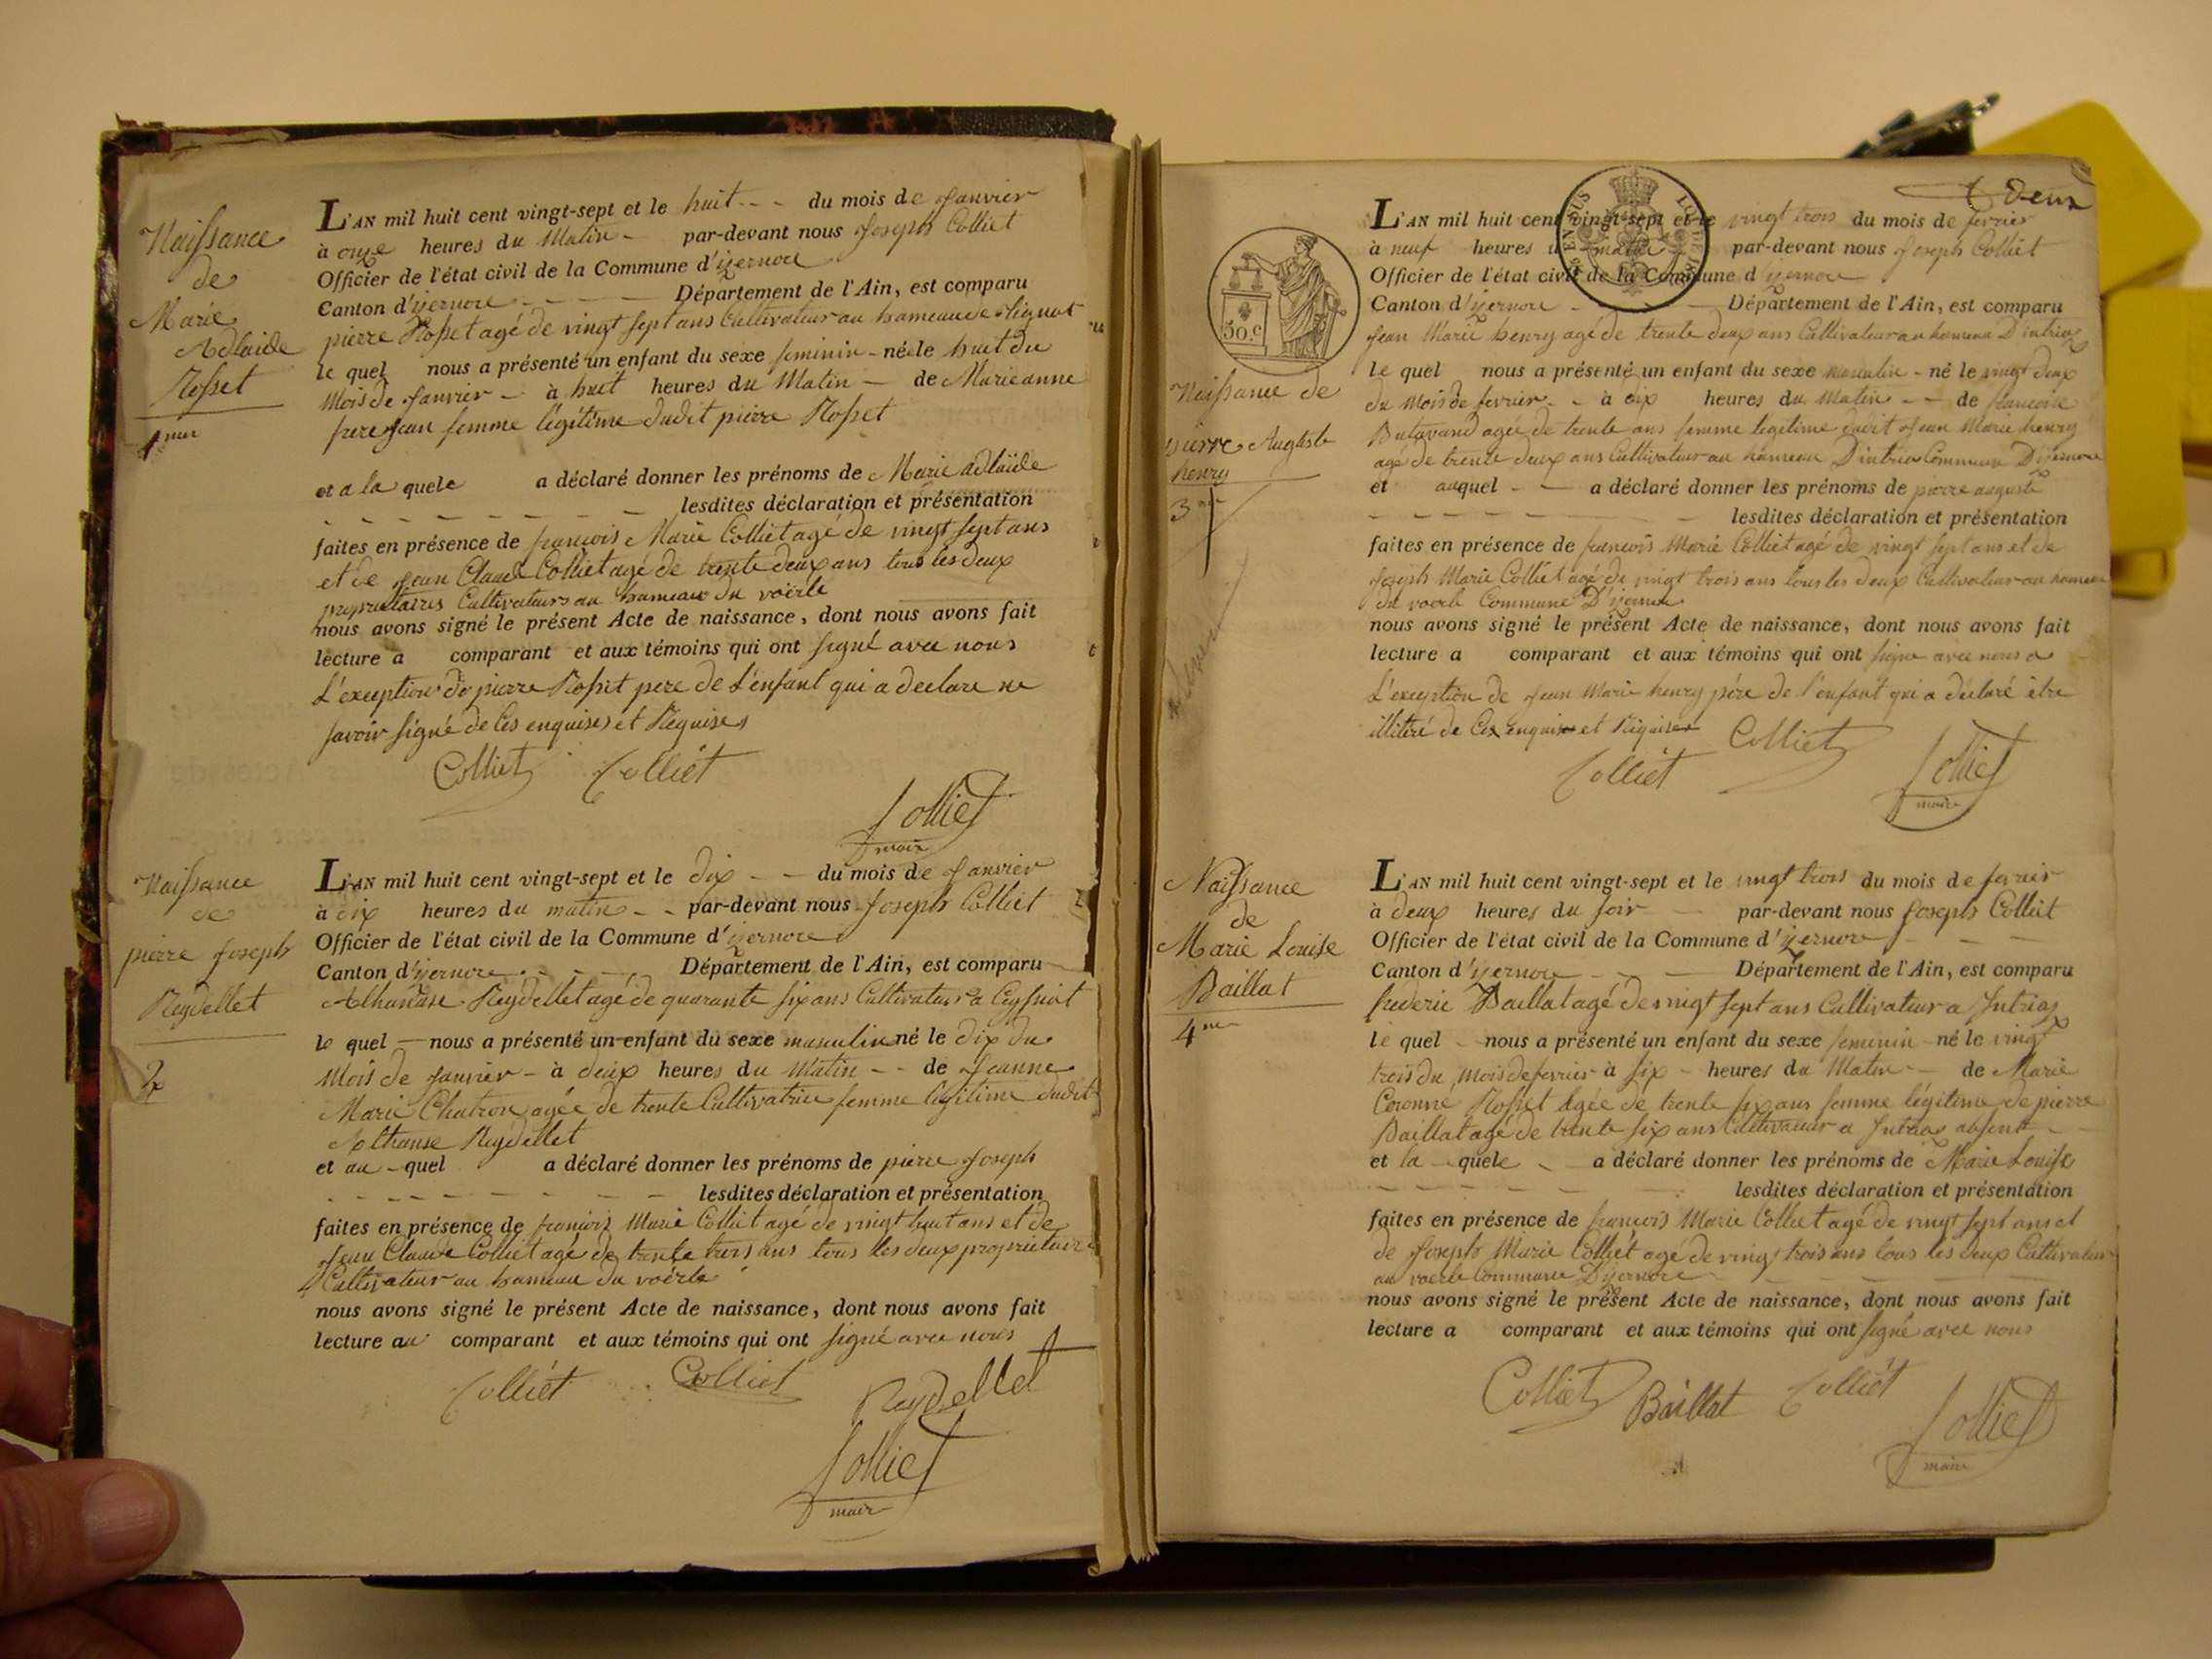 Naissance
de
Marie
Adlaide
Rosset
1mer
L'AN mil huit cent vingt-sept et le huit - - du mois de Janvier
à onze heures du Matin - par-devant nous Joseph Colliet
Officier de l'état civil de la Commune d'izernore
Canton d'izernore - - - Département de l'Ain, est comparu
pierre Rosset agé de vingt sept ans Cultivateur au hameau de Lignat
le quel nous a présenté un enfant du sexe feminin - née le huit du
Mois de Janvier - à huit heures du Matin - de Marieanne
frerejean femme légitime dudit pierre Rosset
et a la quele a déclaré donner les prénoms de Marie adlaïde
- - - - - - - lesdites déclaration et présentation
faites en présence de francois Marie Colliet agé de vingt sept ans
et de Jean Claude Colliet agé de trente deux ans tous les deux
propriétaires Cultivateurs au hameau du voërle
nous avons signé le présent Acte de naissance, dont nous avons fait
lecture a comparant et aux témoins qui ont signé avec nous
L'exception de pierre Rosset pere de L'enfant qui a declare ne
savoir signé de Ces enquises et Requises
Colliet Colliet
Colliet
maire
Naissance
de
pierre Joseph
Reydellet
2
L'AN mil huit cent vingt-sept et le dix - - du mois de Janvier
à dix heures du matin - - par-devant nous Joseph Colliet
Officier de l'état civil de la Commune d'izernore
Canton d'izernore - - - Département de l'Ain, est comparu
Athanase Reydellet agé de quarante six ans Cultivateur a Ceyssiat
le quel - nous a présenté un enfant du sexe masculin né le dix du
Mois de Janvier - à deux heures du Matin - - de Jeanne
Marie Chatron agée de trente Cultivatrice femme légitime dudit
Athanse Reydellet
et au - quel a déclaré donner les prénoms de pierre Joseph
- - - - - - - lesdites déclaration et présentation
faites en présence de francois Marie Colliet agé de vingt huit ans et de
Jean Claude Colliet agé de trente trois ans tous les deux proprietaire
Cultivateur au hameau du voërle
nous avons signé le présent Acte de naissance, dont nous avons fait
lecture au comparant et aux témoins qui ont signé avec nous
Colliet Colliet Reydellet
Colliet
maire
deux
30.c
Naissance de
pierre Auguste
henry
3me
L'AN mil huit cent vingt-sept et le vingt trois du mois de fevrier
à neuf heures du matin par-devant nous Joseph Colliet
Officier de l'état civil de la Commune d'izernore
Canton d'izernore - - Département de l'Ain, est comparu
Jean Marie henry agé de trente deux ans Cultivateur au hameau D'intriax
le quel nous a présenté un enfant du sexe masculin - né le vingt deux
du Mois de fevrier - - à dix heures du Matin - - de francoise
Butavand agée de trente ans femme legitime dudit Jean Marie henry
agé de trente deux ans Cultivateur au hameau D'intriax Commune D'izernore
et auquel - - a déclaré donner les prénoms de pierre auguste
- - - - - - lesdites déclaration et présentation
faites en présence de francois Marie Colliet agé de vingt sept ans et de
Joseph Marie Colliet agé de vingt trois ans tous les deux Cultivateur au hameau
du voerle Commune D'izernore
nous avons signé le présent Acte de naissance, dont nous avons fait
lecture a comparant et aux témoins qui ont signé avec nous a
L'exception de Jean Marie henry père de l'enfant qui a déclaré être
illitéré de Ces Enquis et Réquises
Colliet Colliet Colliet
maire
Naissance
de
Marie Louise
Baillat
4me
L'AN mil huit cent vingt-sept et le vingt trois du mois de fevrier
à deux heures du soir - par-devant nous Joseph Colliet
Officier de l'état civil de la Commune d'izernore - - -
Canton d'izernore - - Département de l'Ain, est comparu
frederic Baillat agé de vingt sept ans Cultivateur a Intriax
le quel - nous a présenté un enfant du sexe feminin - né le vingt
trois du Mois de fevrier à six - heures du Matin - de Marie
Coronne Rosset agée de trente six ans femme légitime de pierre
Baillat agé de trente six ans Cultivateur a Intriax absent - -
et la - quele - a déclaré donner les prénoms de Marie Louise
- - - - - - lesdites déclaration et présentation
faites en présence de francois Marie Colliet agé de vingt sept ans et
de Joseph Marie Colliet agé de vingt trois ans tous les deux Cultivateur
au voerle Commune D'izernore
nous avons signé le présent Acte de naissance, dont nous avons fait
lecture a comparant et aux témoins qui ont signé avec nous
Colliet Baillat Colliet
Colliet
maire